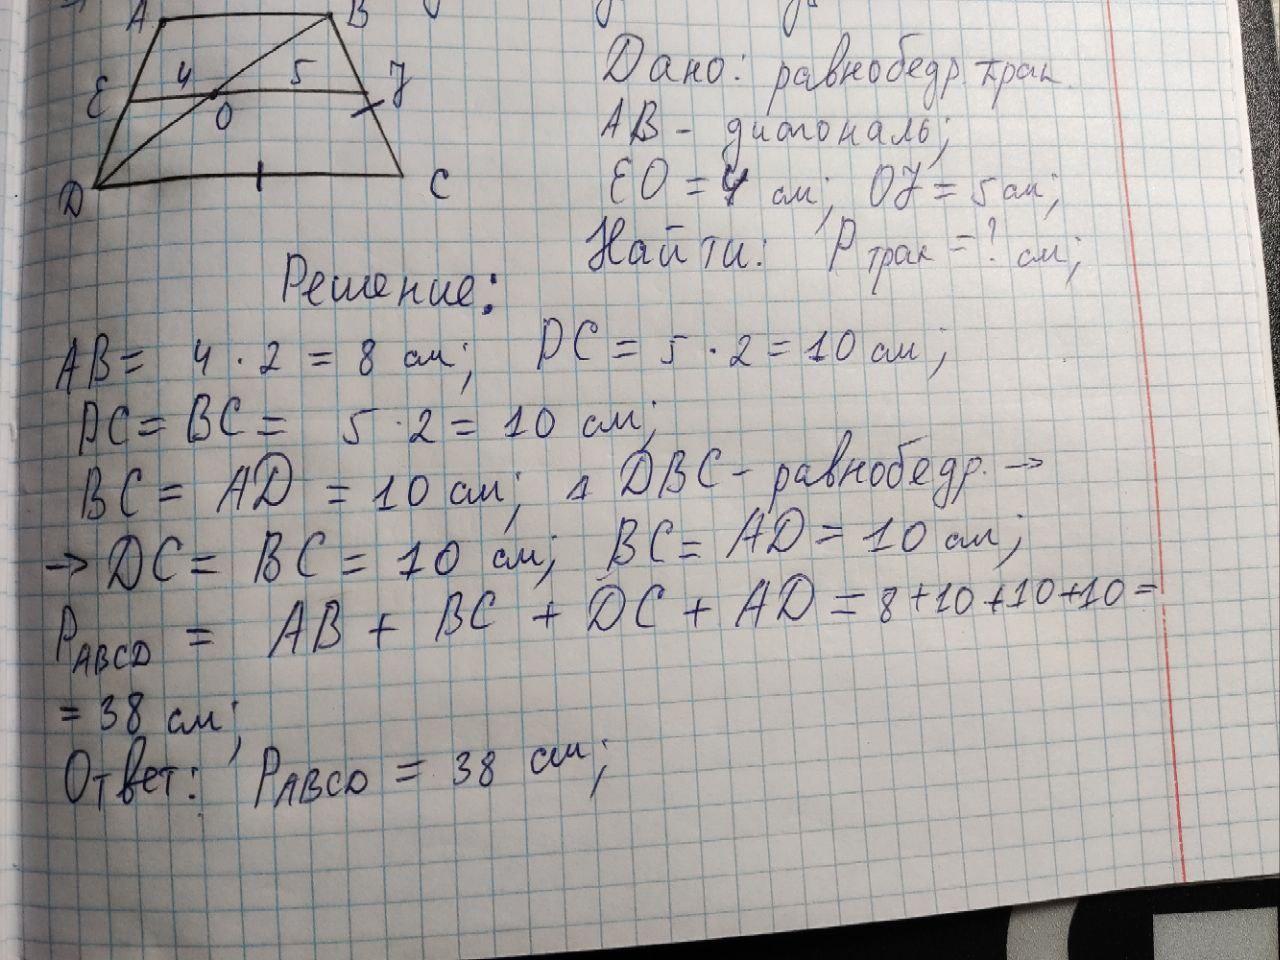 A B
E 4 5 F
O
D C
Дано: равнобедр. трап.
AB - диагональ;
EO = 4 см; OF = 5 см;
Найти: P трап = ? см;
Решение:
AB = 4 · 2 = 8 см; DC = 5 · 2 = 10 см;
DC = BC = 5 · 2 = 10 см;
BC = AD = 10 см; △ DBC - равнобедр. →
→ DC = BC = 10 см; BC = AD = 10 см;
PABCD = AB + BC + DC + AD = 8 + 10 + 10 + 10 =
= 38 см;
Ответ: PABCD = 38 см;